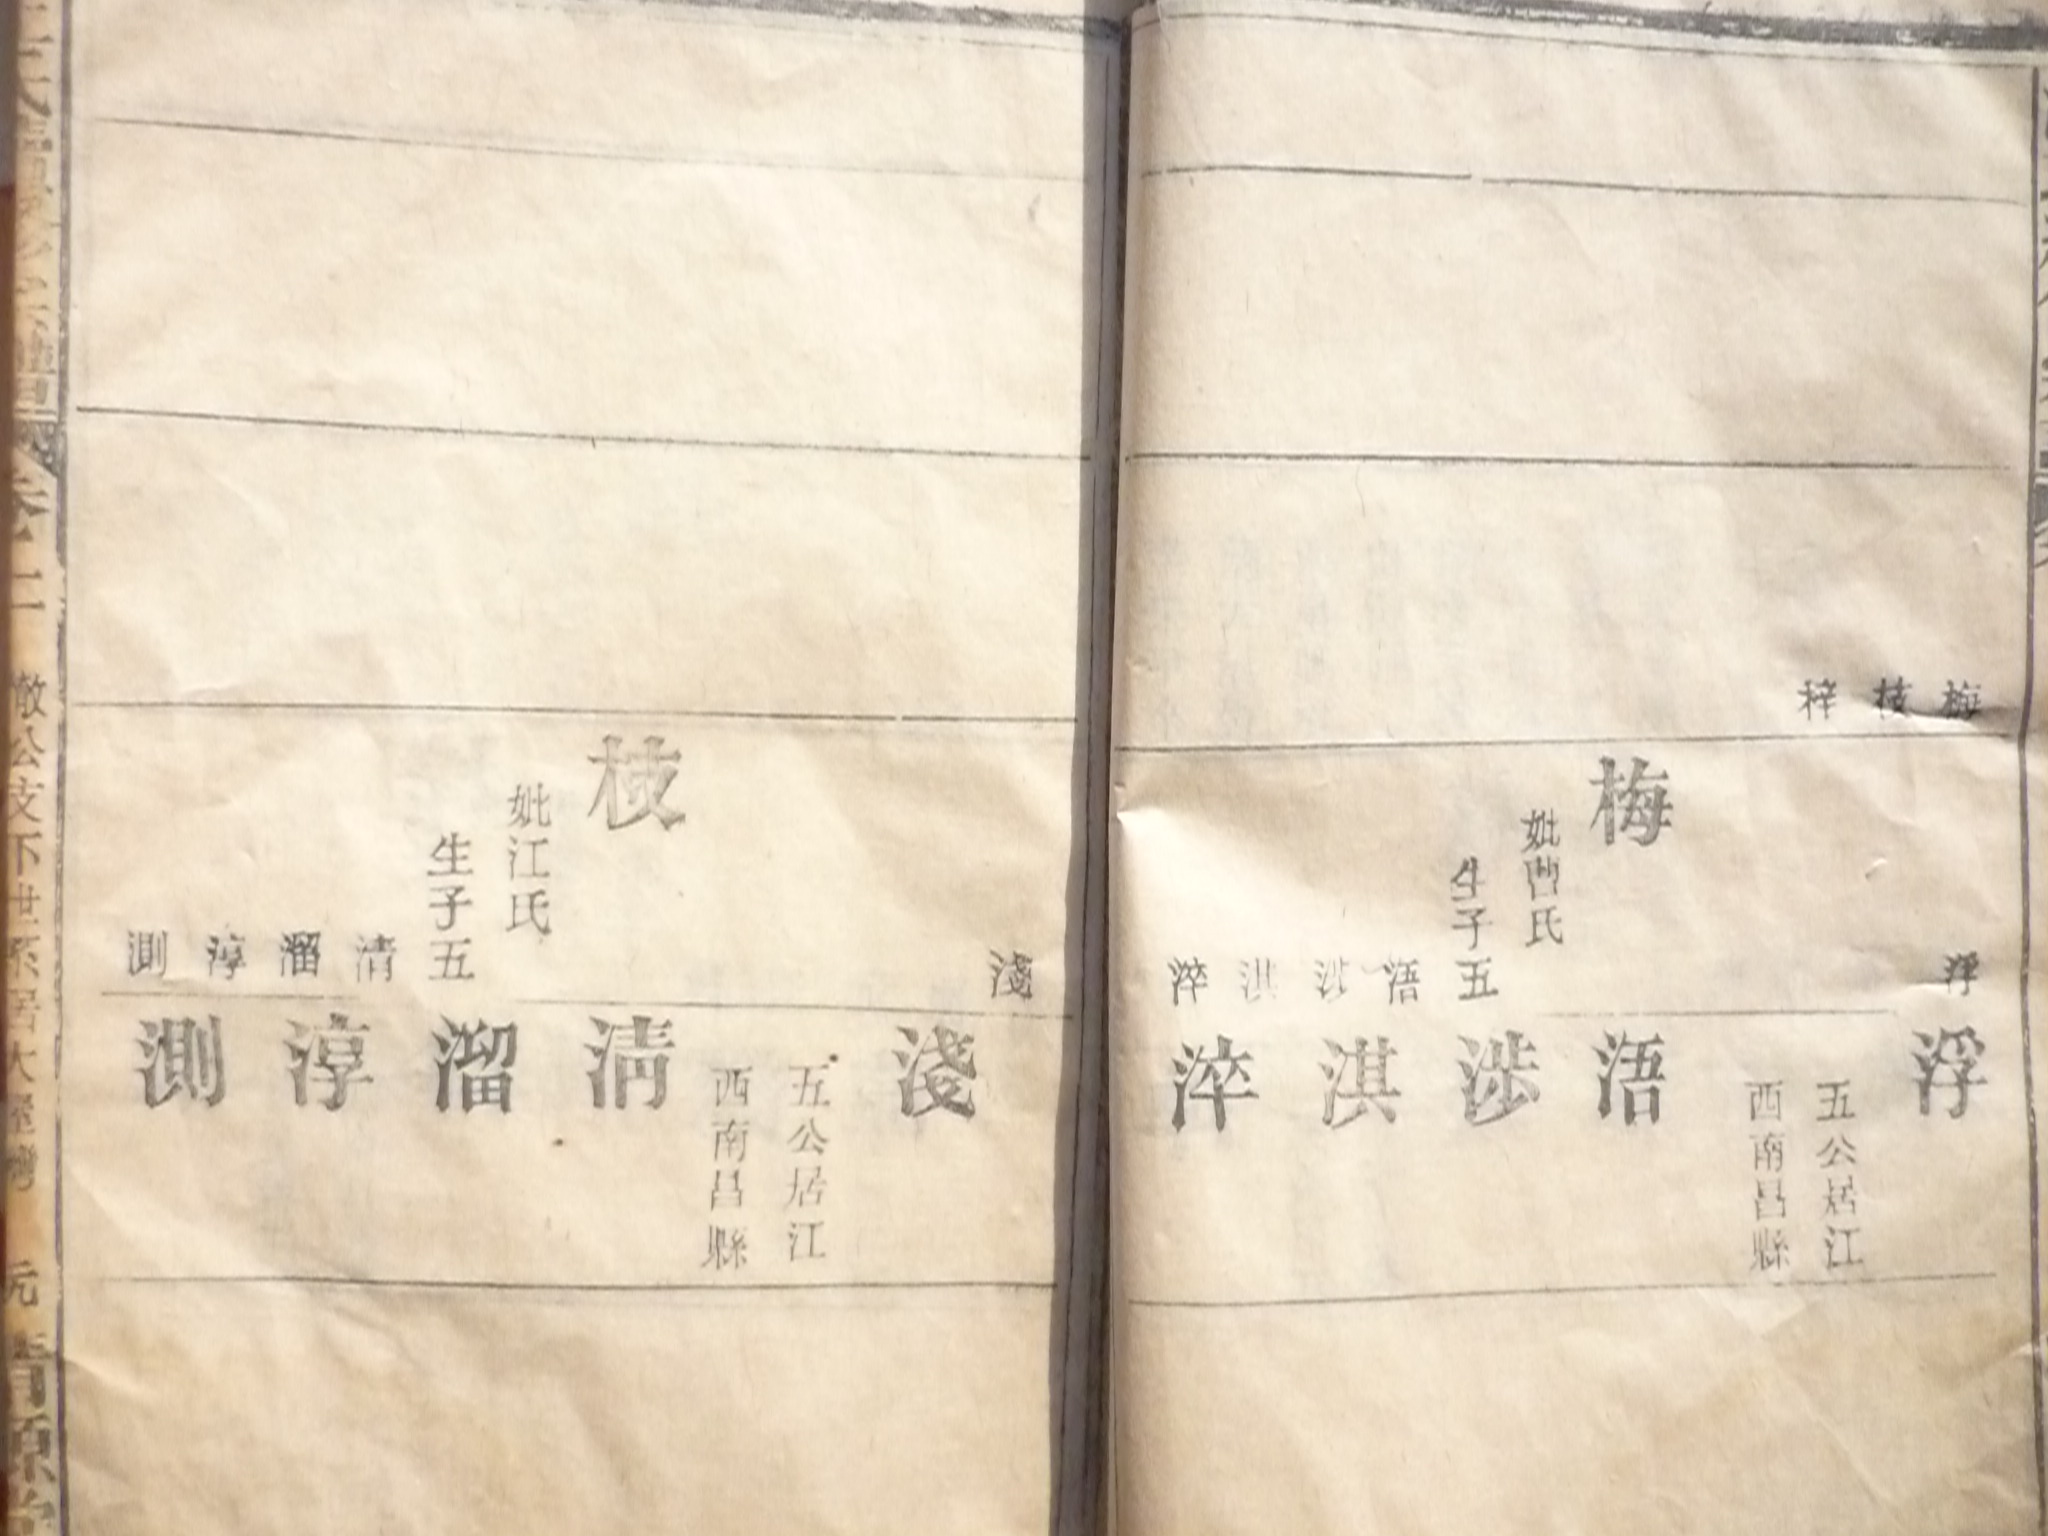 梅
枝
梓
浮
梅
妣曹氏
生子五
浯
涉
淇
淬
浮
五公居江
西南昌縣
浯
涉
淇
淬
淺
枝
妣江氏
生子五
清
溜
淳
測
淺
五公居江
西南昌縣
清
溜
淳
測
卷二
徹公支下世系居大屋灣
元
清源堂